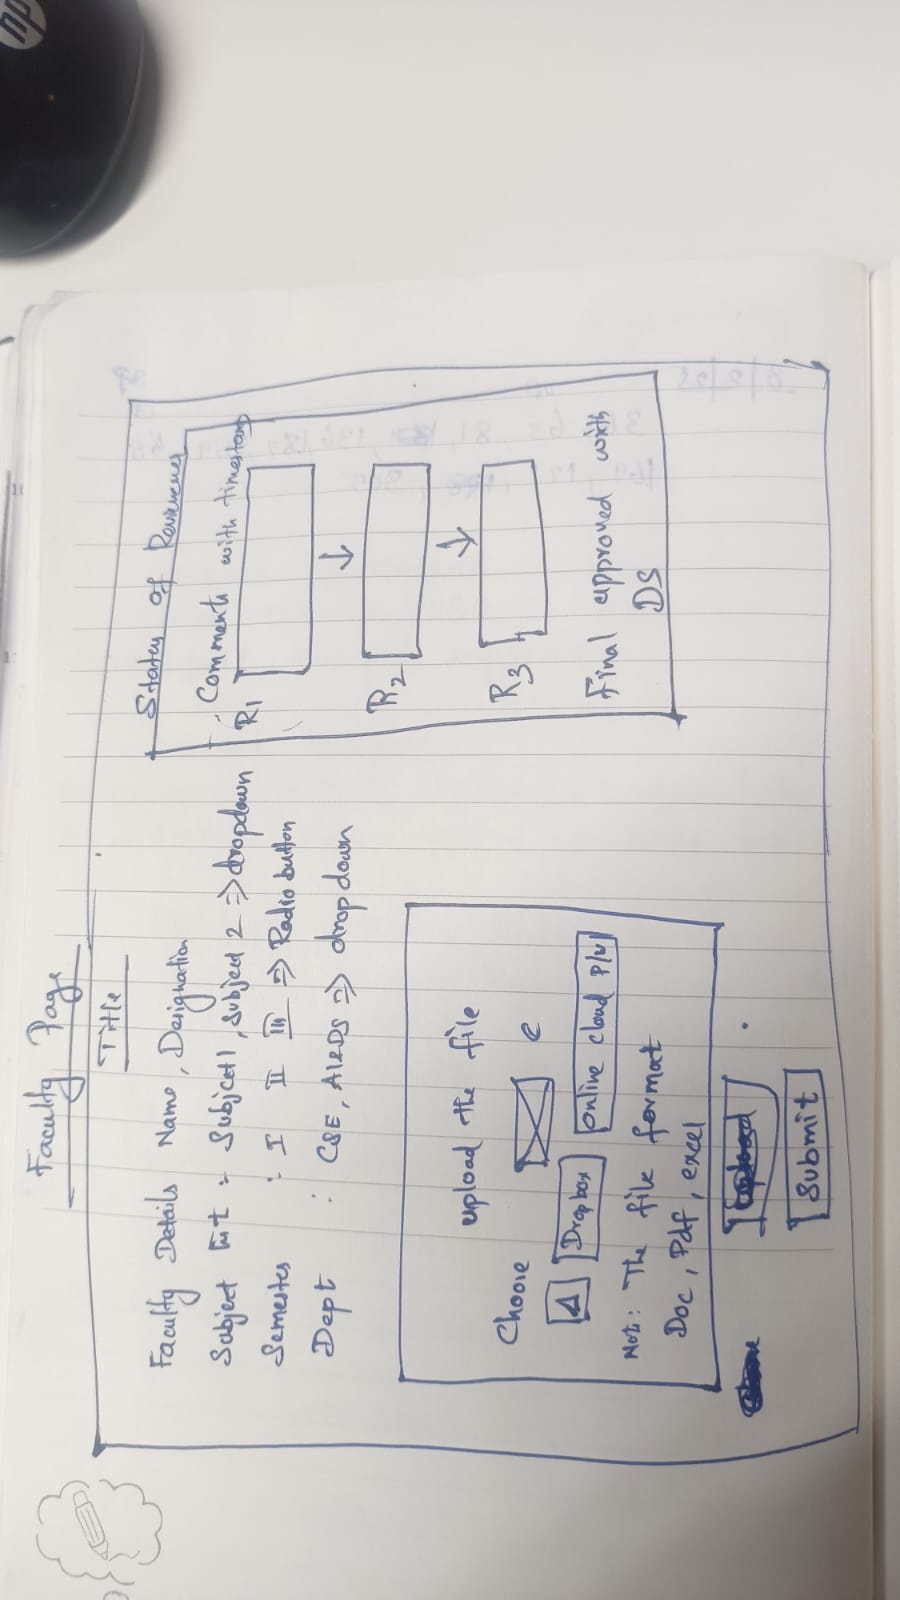 Faculty Page
Title
Faculty Details Name, Designation
Subject : Subject 1, Subject 2 => dropdown
Semester : I II III => Radio button
Dept : CSE, AI&DS => drop down
upload the file
Choose
Dropbox
online cloud
Note: The file format
Doc, Pdf, excel
Submit
Status of Reviewer
Comments with timestamp
R1
↓
R2
↓
R3
Final approved with
DS
hp